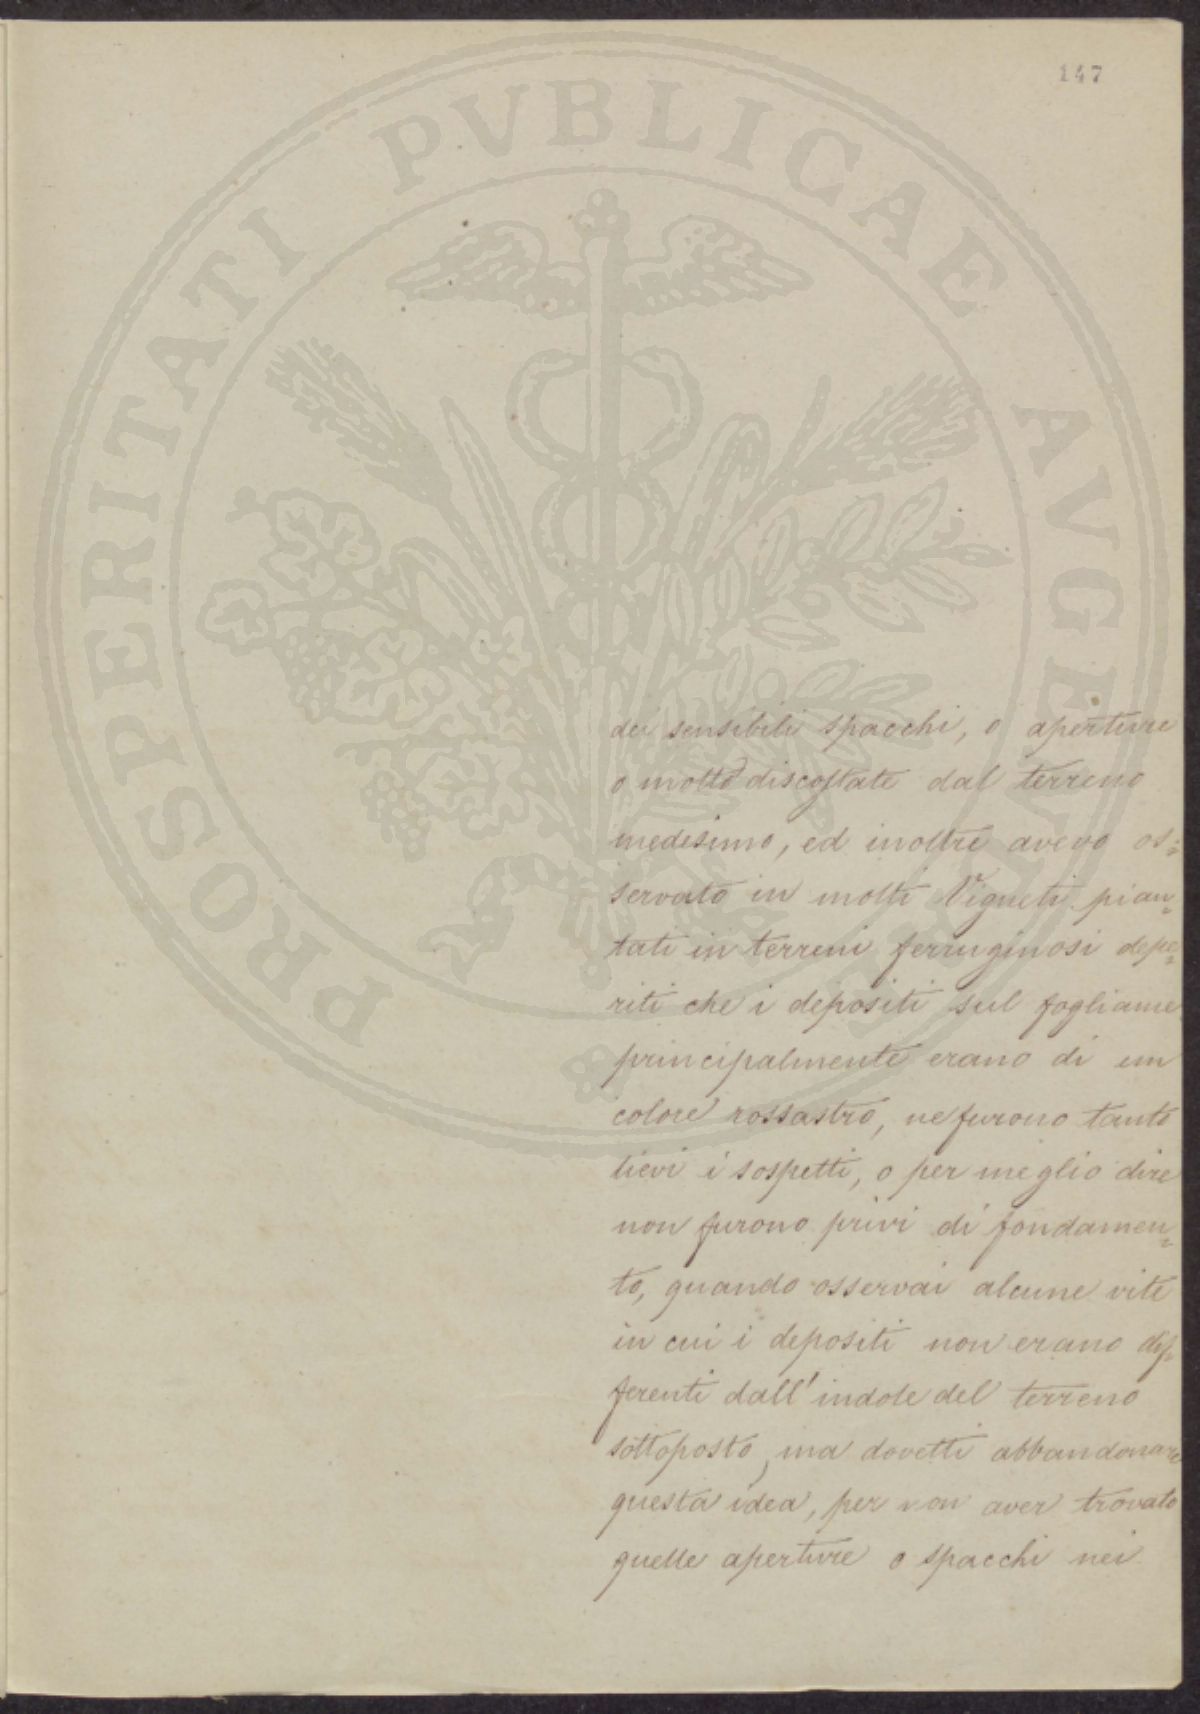 147
PROSPERITATI PVBLICAE AVGENDAE
dei sensibili spacchi, o aperture
o molto discostate dal terreno
medesimo, ed inoltre avevo os=
servato in molti Vigneti pian=
tati in terreni ferruginosi depe=
riti che i depositi sul fogliame
principalmente erano di un
colore rossastro, ne furono tanto
lievi i sospetti, o per meglio dire
non furono privi di fondamen=
to, quando osservai alcune viti
in cui i depositi non erano dif=
ferenti dall'indole del terreno
sottoposto, ma dovetti abbandonare
questa idea, per non aver trovato
quelle aperture o spacchi nei